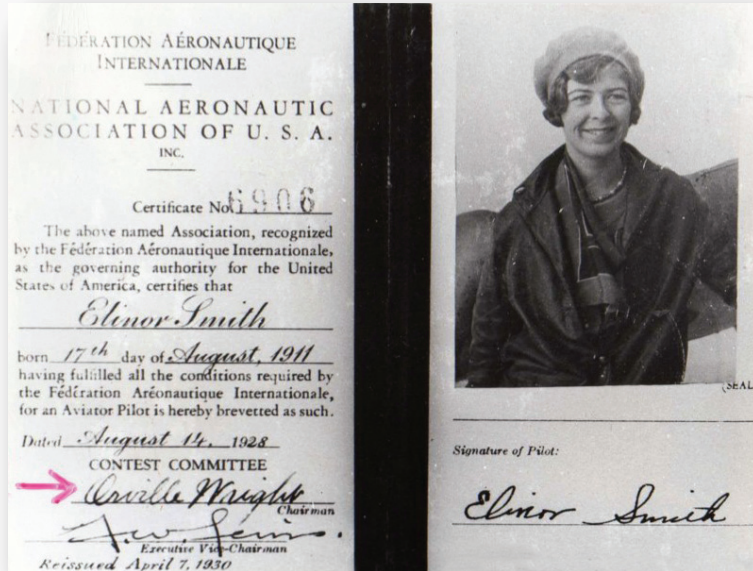 FÉDÉRATION AÉRONAUTIQUE
INTERNATIONALE
NATIONAL AERONAUTIC
ASSOCIATION OF U. S. A.
INC.
Certificate No. 6906
The above named Association, recognized
by the Fédération Aéronautique Internationale,
as the governing authority for the United
States of America, certifies that
Elinor Smith
born 17th day of August, 1911
having fulfilled all the conditions required by
the Fédération Aréonautique Internationale,
for an Aviator Pilot is hereby brevetted as such.
Dated August 14, 1928
CONTEST COMMITTEE
Orville Wright
Chairman
Executive Vice-Chairman
Reissued April 7, 1930
(SEAL
Signature of Pilot:
Elinor Smith